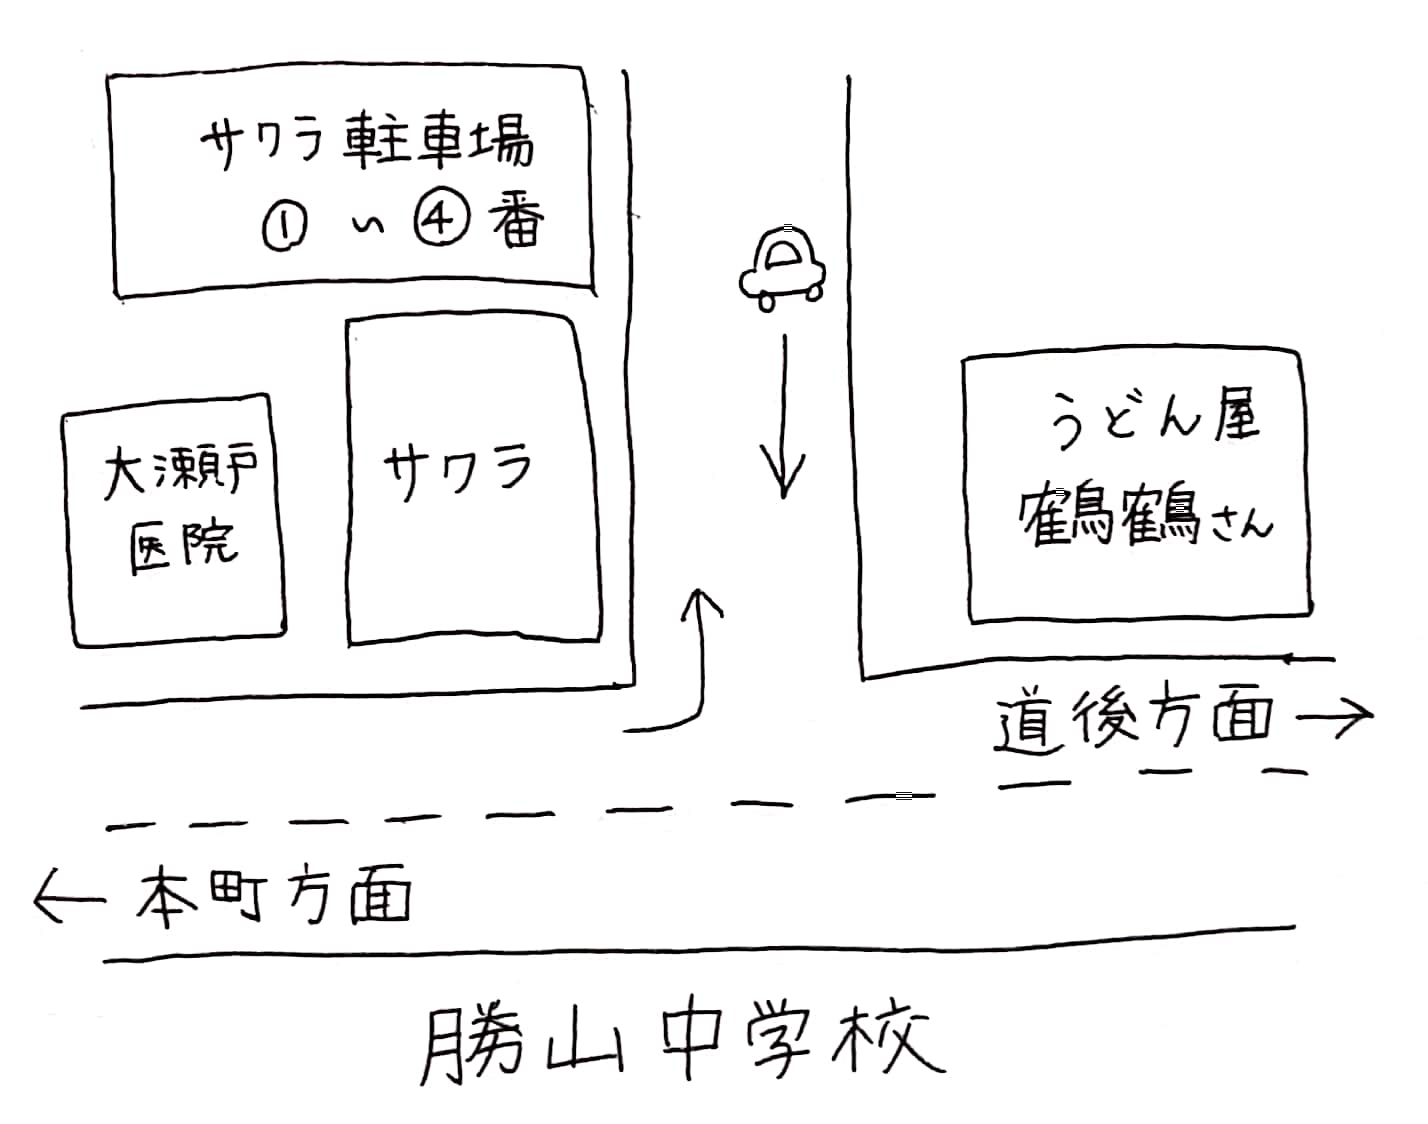 サワラ駐車場
① 〜 ④ 番
大瀬戸
医院
サワラ
うどん屋
鶴鶴さん
道後方面 →
← 本町方面
勝山中学校